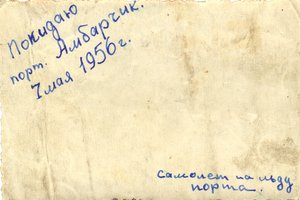 Покидаю
порт. Амбарчик.
7 мая 1956 г.
самолет на льду
порта.